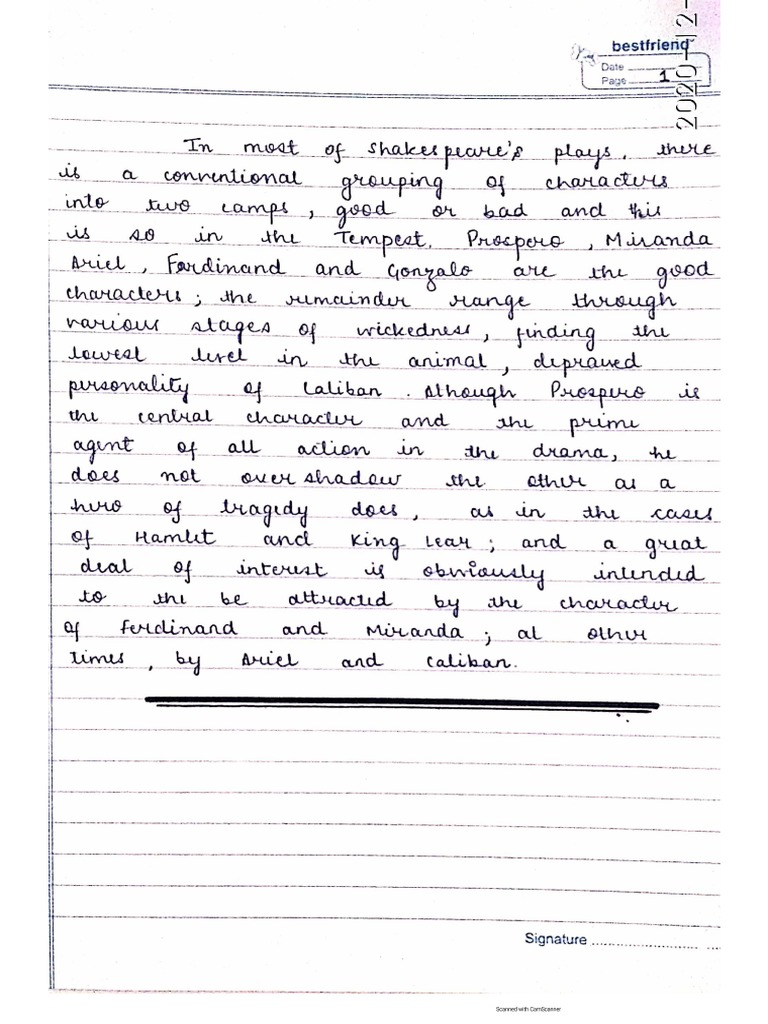 2020-12-
bestfriend
Date
Page 1
In most of shakespeare's plays, there
is a conventional grouping of characters
into two camps, good or bad and this
is so in the Tempest. Prospero, Miranda
Ariel, Ferdinand and Gonzalo are the good
characters; the remainder range through
various stages of wickedness, finding the
lowest level in the animal, depraved
personality of Caliban. Although Prospero is
the central character and the prime
agent of all action in the drama, he
does not over shadow the other as a
hero of tragedy does, as in the cases
of Hamlet and King Lear; and a great
deal of interest is obviously intended
to the be attracted by the character
of Ferdinand and Miranda; at other
times, by Ariel and Caliban.
Signature
Scanned with CamScanner